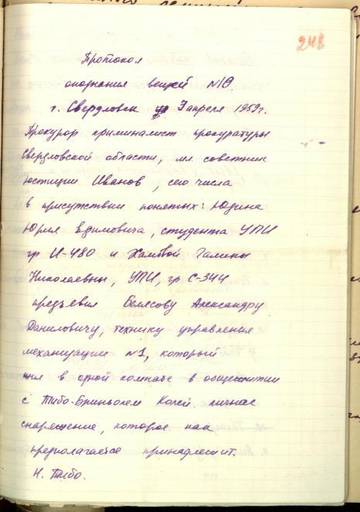 248
Протокол
опознания вещей №10
г. Свердловск 3 апреля 1959г.
Прокурор криминалист прокуратуры
Свердловской области, мл советник
юстиции Иванов, сего числа
в присутствии понятых: Юдина
Юрия Ефимовича, студента УПИ
гр И-480 и Галины
Николаевны, УПИ, гр С-344
предъявил Александру
Даниловичу, технику управления
механизации №1, который
жил в одной комнате в общежитии
с Тибо-Бриньолем Колей личное
снаряжение, которое как
предполагается принадлежит.
Н. Тибо.